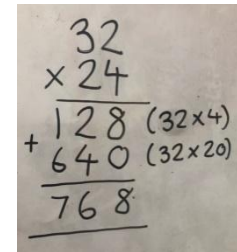 32
× 24
128 (32×4)
+ 640 (32×20)
768